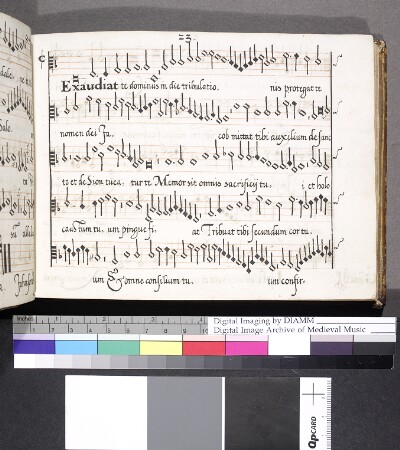 23.
Exaudiat te dominus in die tribulatio. nis protegat te
nomen dei Ja. cob mittat tibi auxilium de sanc
to et de Sion tuea. tur te Memor sit omnis sacrificij tu. i et holo
caustum tu. um pingue fi. at Tribuat tibi secundum cor tu.
um Et omne consilium tu. um confir.
Inches 1 2 3 4
Digital Imaging by DIAMM
Digital Image Archive of Medieval Music
QPCARD